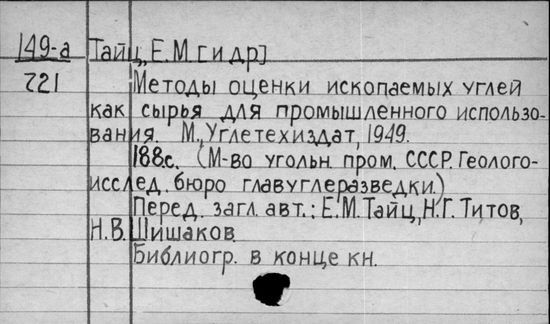 149-а Тайц, Е.М. [и др]
721 Методы оценки ископаемых углей
как сырья для промышленного использо-
вания. М., Углетехиздат, 1949.
188с. (М-во угольн. пром. СССР. Геолого-
исслед. бюро главуглеразведки.)
Перед загл. авт.: Е.М. Тайц, Н.Г. Титов,
Н.В. Шишаков.
Библиогр. в конце кн.